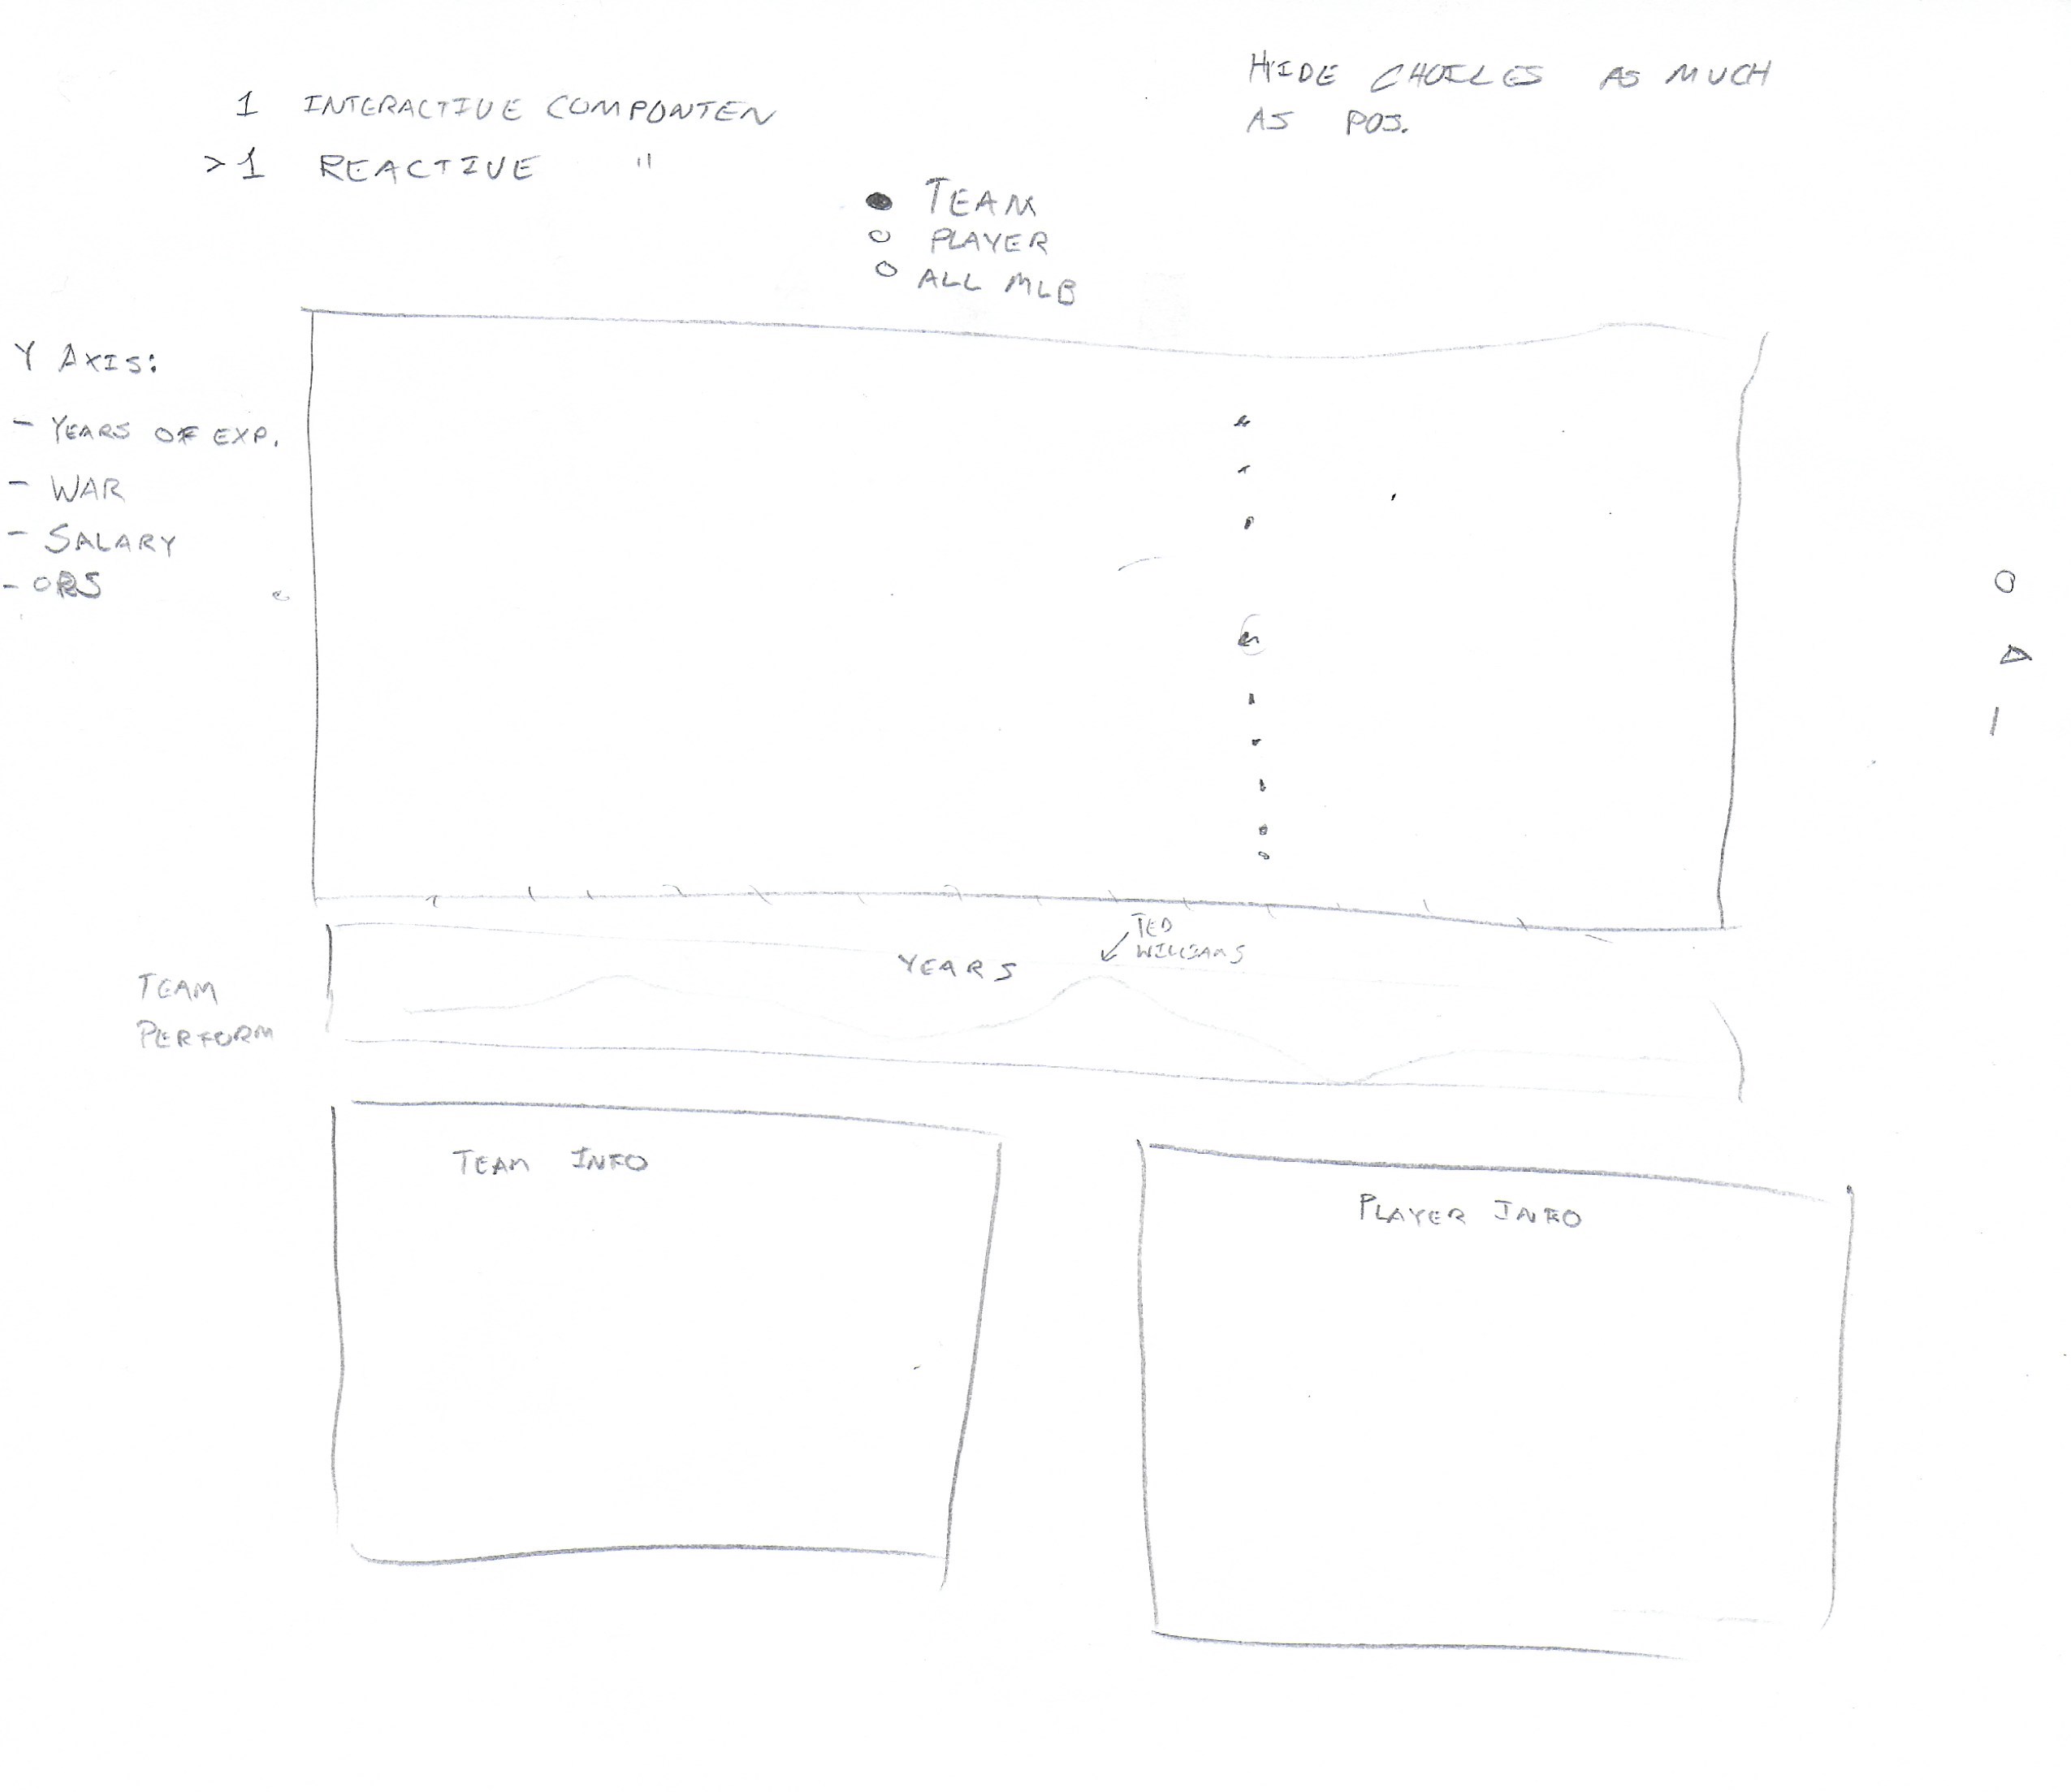 1 INTERACTIVE COMPONTEN
>1 REACTIVE "
HIDE CHOICES AS MUCH
AS POS.
TEAM
PLAYER
ALL MLB
Y AXIS:
- YEARS OF EXP.
- WAR
- SALARY
YEARS
TED
WILLIAMS
TEAM
PERFORM
TEAM INFO
PLAYER INFO